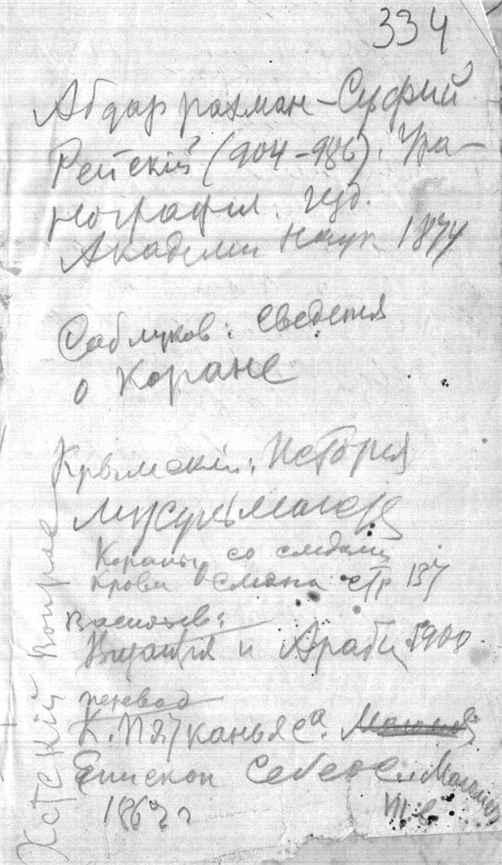 334
Абдаррахман-Суфий
Рейскiй (904-986). Ура-
нография. изд.
Академии Наук 1874
Саблуков: сведения
о Коране
Крымскiй: История
мусульманства
Кораны со следами
крови Османа стр 137
Васильев:
Византия и Арабы 1900.
перевод
К. Патканьяна.
Епископ Себеос.
1862 г
Хетскiй вопрос